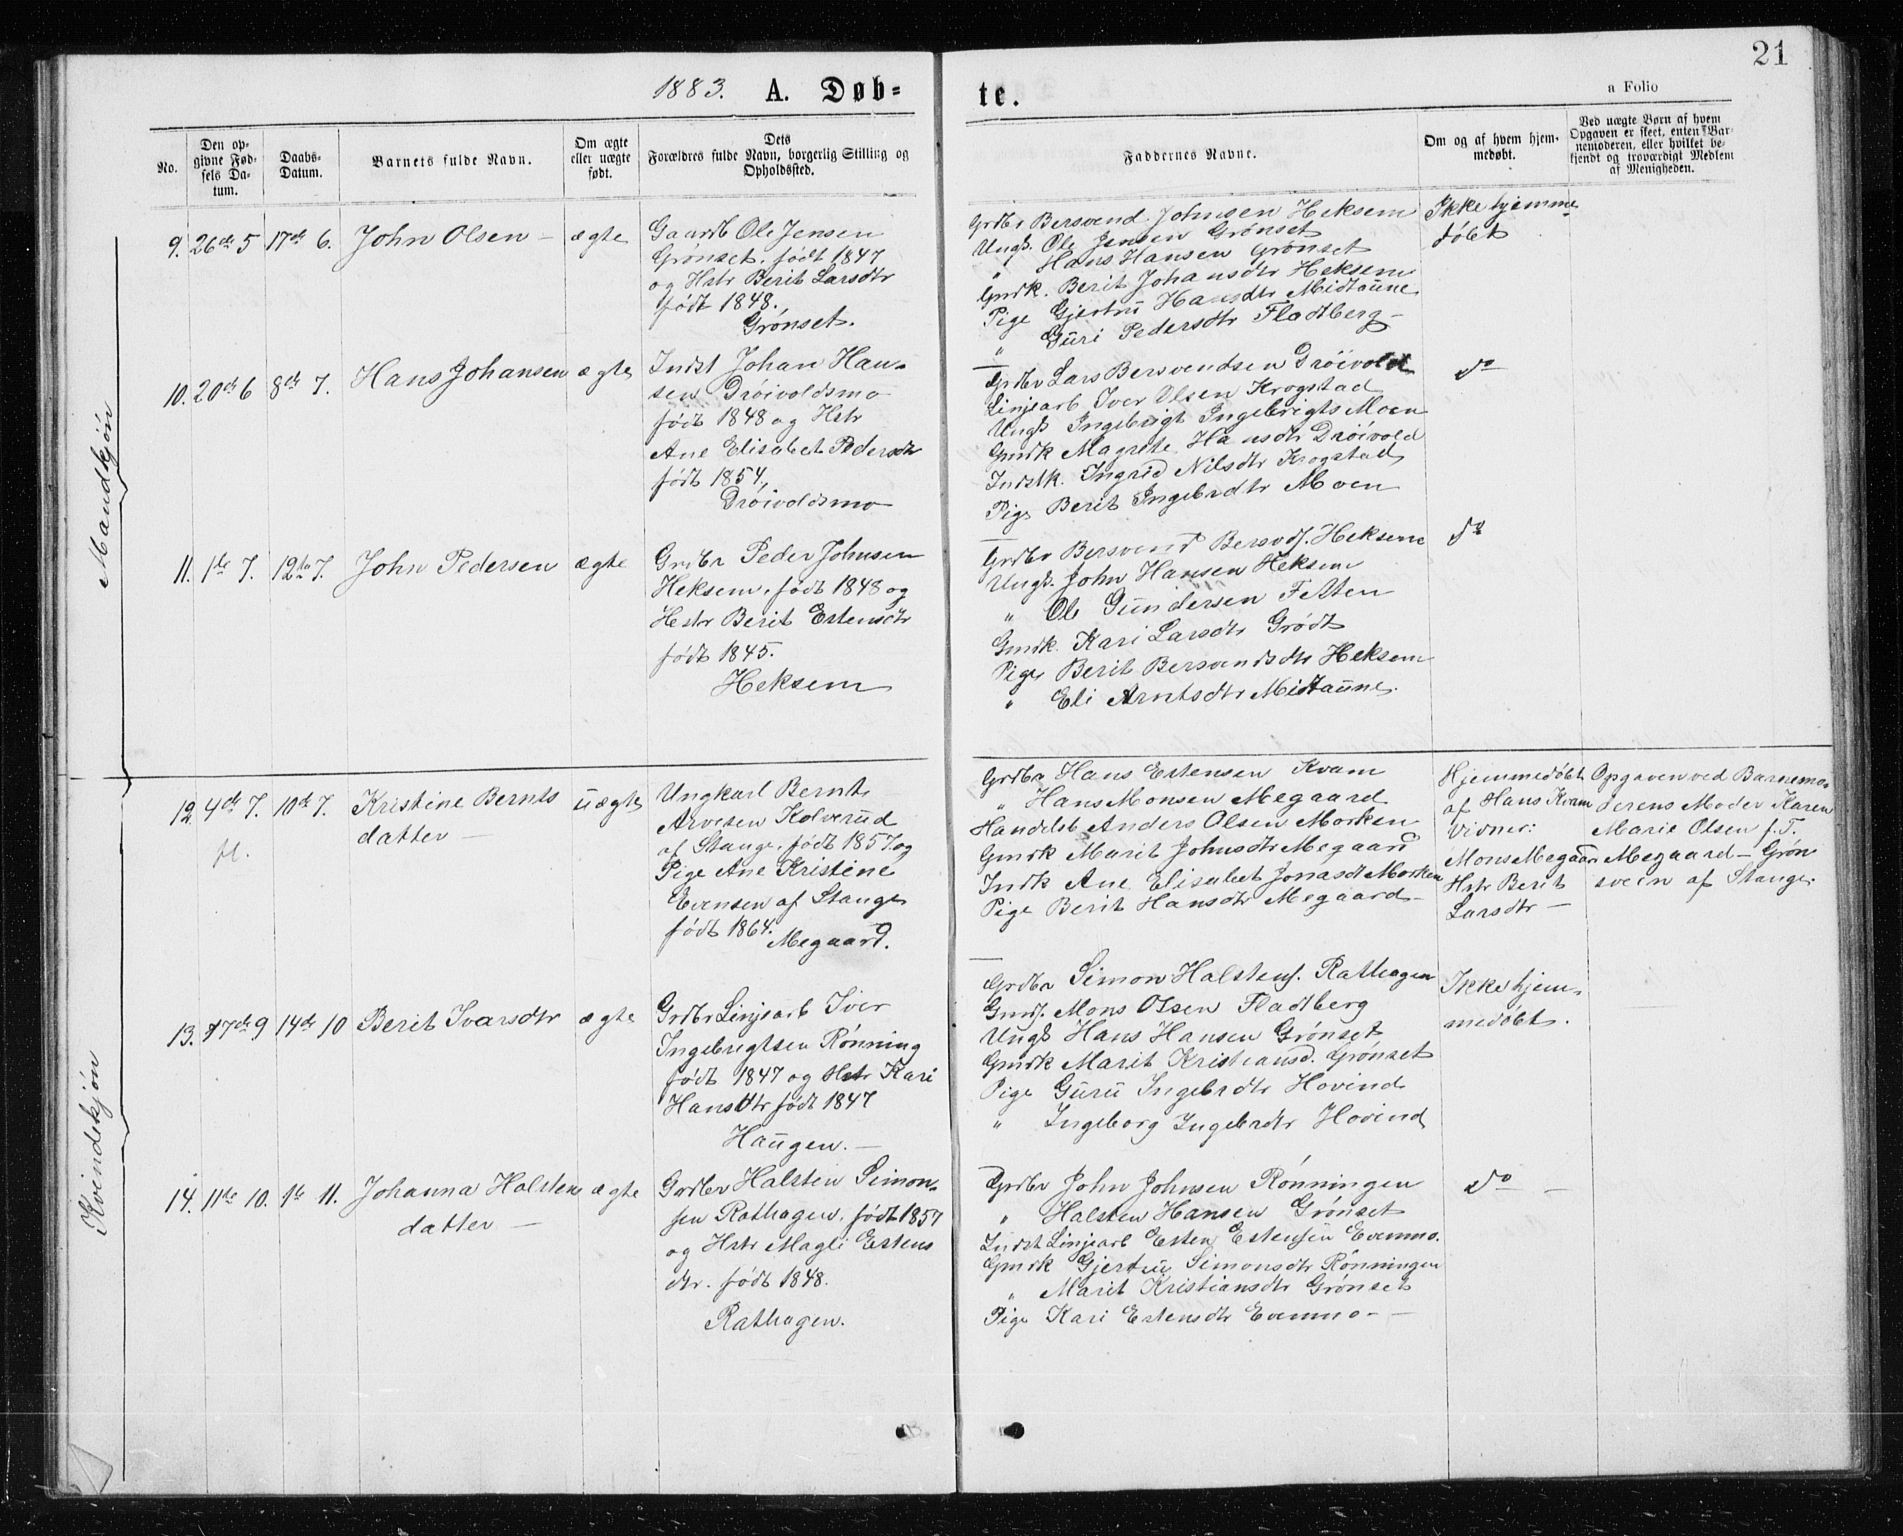 21
1883. A. Døb=
te.
a Folio
No.
Den op-
givne Fød-
sels Da-
tum.
Daabs-
Datum.
Barnets fulde Navn.
Om ægte
eller uægte
født.
Dets
Forældres fulde Navn, borgerlig Stilling og
Opholdssted.
Faddernes Navne.
Om og af hvem hjem-
medøbt.
Ved uægte Børn af hvem
Opgaven er skeet, enten Bar-
nemoderen, eller hvilket be-
kjendt og troværdigt Medlem
af Menigheden.
Mandkjøn
9. 26de 5 17de 6. John Olsen — ægte
Gaardb Ole Jensen
Grønset. født 1847
og Hstr Berit Larsdtr
født 1848.
Grønset.
Grdbr Bersvend Johnsen Heksem
Ungk. Ole Jensen Grønset
" Hans Hansen Grønset
Gmdk. Berit Johansdtr Heksem
Pige Gjertru Hansdtr Midtaune
" Guri Pedersdtr Fladberg —
Ikke hjemme
døbt
10. 20de 6 8de 7. Hans Johansen ægte
Indst Johan Han-
sen Drøivoldsmo
født 1848 og Hstr
Ane Elisabet Pedersdtr
født 1854,
Drøivoldsmo
Grdbr Lars Bersvendsen Drøivold
Linjearb Iver Olsen Krogstad
Ungk Ingebrigt Ingebrigts Moen
Gmdk Magrete Hansdtr Drøivold
Indstk. Ingrid Nilsdtr Krogstad
Pige Berit Ingebrdtr Moen
do
11. 1ste 7. 12te 7. John Pedersen ægte
Grdbr Peder Johnsen
Heksem. født 1848 og
Hstr Berit Estensdtr
født 1845.
Heksem
Grdbr Bersvend Bersvds. Heksem
Ungk. John Hansen Heksem
" Ole Gundersen Fetten
Gmdk. Kari Larsdtr Grødt
Pige Berit Bersvendsdtr Heksem
" Eli Arntsdtr Midtaune.
do
Kvindekjøn
12. 4de 7. 10de 7. Kristine Bernts uægte
datter —
Ungkarl Bernt
Arvesen Kolverud
af Stange. født 1857 og
Pige Ane Kristine
Evensen af Stange
født 1864.
Megaard.
Grdbr Hans Estensen Kvam
" Hans Monsen Megaard
Handelsb Anders Olsen Morken
Gmdk Marit Johnsdtr Megaard
Indk Ane Elisabet Jonasdt Morken
Pige Berit Hansdtr Megaard —
Hjemmedøbt
af Hans Kvam
Vidner:
Mons Megaar
Hstr Berit
Larsdtr —
Opgaven ved Barnemo-
derens Moder Karen
Marie Olsen f. T.
Megaard — Grøn
svein af Stange.
13. 17de 9 14de 10 Berit Ivarsdtr ægte
Grdbr Linjearb Iver
Ingebrigtsen Rønning
født 1847 og Hstr Kari
Hansdtr født 1847
Haugen. —
Grdbr Simon Halstens. Rathagen
Gmds. Mons Olsen Fladberg
Ungk Hans Hansen Grønset
Gmdk Marit Kristiansd. Grønset
Pige Guru Ingebrdtr Hovind
" Ingeborg Ingebrdtr Hovind
Ikke hjem-
medøbt.
14. 11te 10. 1ste 11. Johanna Halstens ægte
datter —
Grdbr Halsten Simon-
sen Rathagen, født 1857
og Hstr Magli Estens
dtr. født 1848.
Rathagen.
Grdbr John Johnsen Rønningen
" Halsten Hansen Grønset
Indst Linjearb Esten Estensen Evenmo.
Gmdk Gjertru Simonsdtr Rønningen
" Marit Kristiansdtr Grønset
Pige Kari Estensdtr Evenmo —
do —